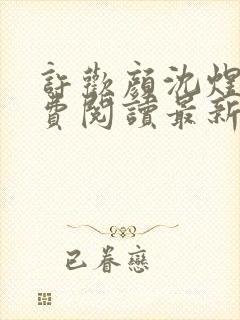 許歡顏沈煌
費閱讀最新
已眷戀